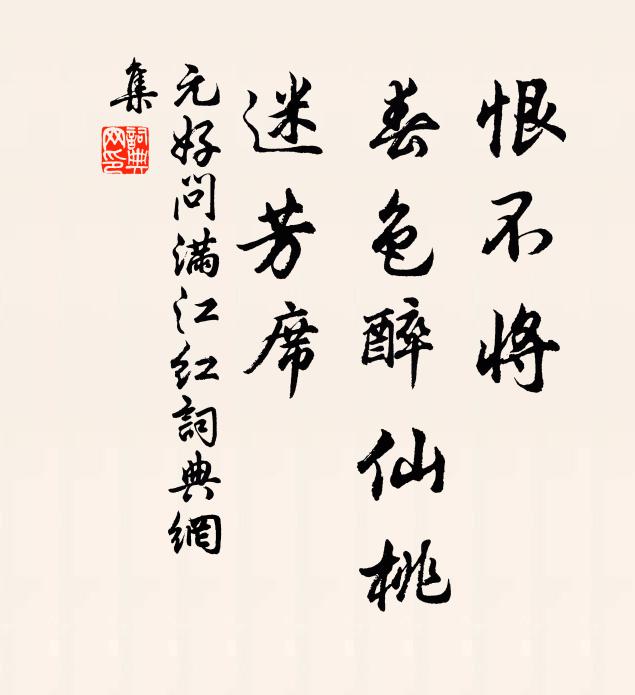 恨不将
春色醉仙桃
迷芳席
元好问满江红詞典網
集
詞典
网印